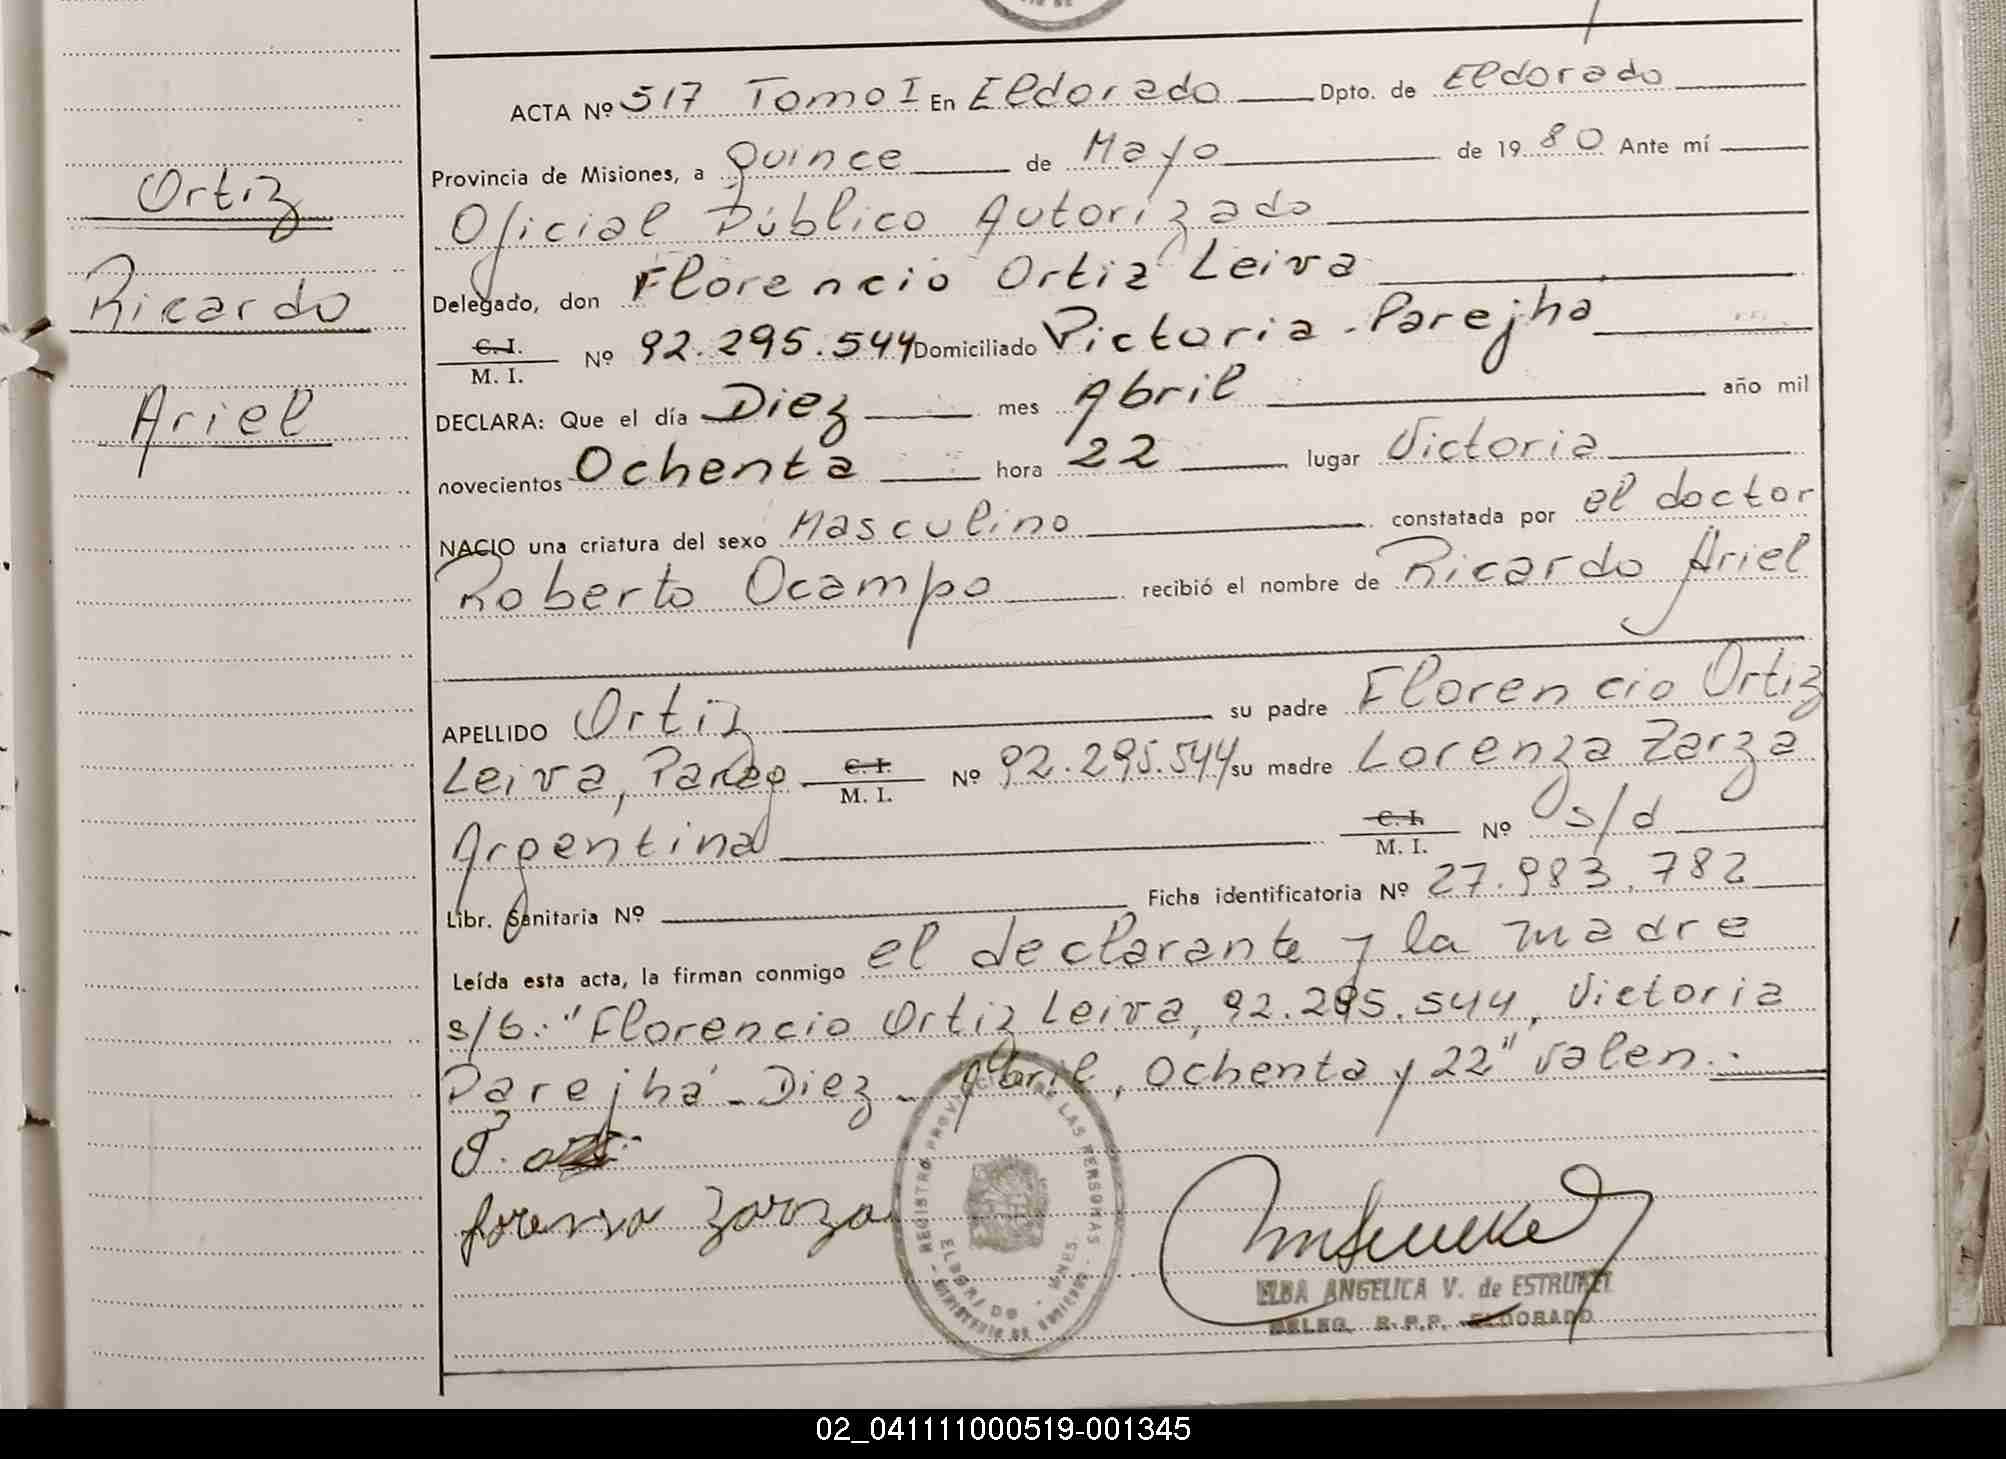 ACTA Nº 517 Tomo I En Eldorado Dpto. de Eldorado
Provincia de Misiones, a Quince de Mayo de 1980 Ante mí
Oficial Público Autorizado
Delegado, don Florencio Ortiz Leiva
C. I. M. I. Nº 92.295.544 Domiciliado Victoria - Parejha
DECLARA: Que el día Diez mes Abril año mil
novecientos Ochenta hora 22 lugar Victoria
NACIO una criatura del sexo Masculino constatada por el doctor
Roberto Ocampo recibió el nombre de Ricardo Ariel
APELLIDO Ortiz su padre Florencio Ortiz
Leiva, C. I. M. I. Nº 92.295.544 su madre Lorenza Zarza
Argentina C. I. M. I. Nº s/d
Libr. Sanitaria Nº Ficha identificatoria Nº 27.983.782
Leída esta acta, la firman conmigo el declarante y la madre
s/b: "Florencio Ortiz Leiva, 92.295.544, Victoria
Parejhá - Diez - Abril, Ochenta y 22" valen.
Lorenza Zarza
REGISTRO PROVINCIAL DE LAS PERSONAS
ELDORADO - MNES.
MINISTERIO DE GOBIERNO
ELBA ANGELICA V. de ESTRUKEL
DELEG. R.P.P. ELDORADO
Ortiz
Ricardo
Ariel
02_041111000519-001345